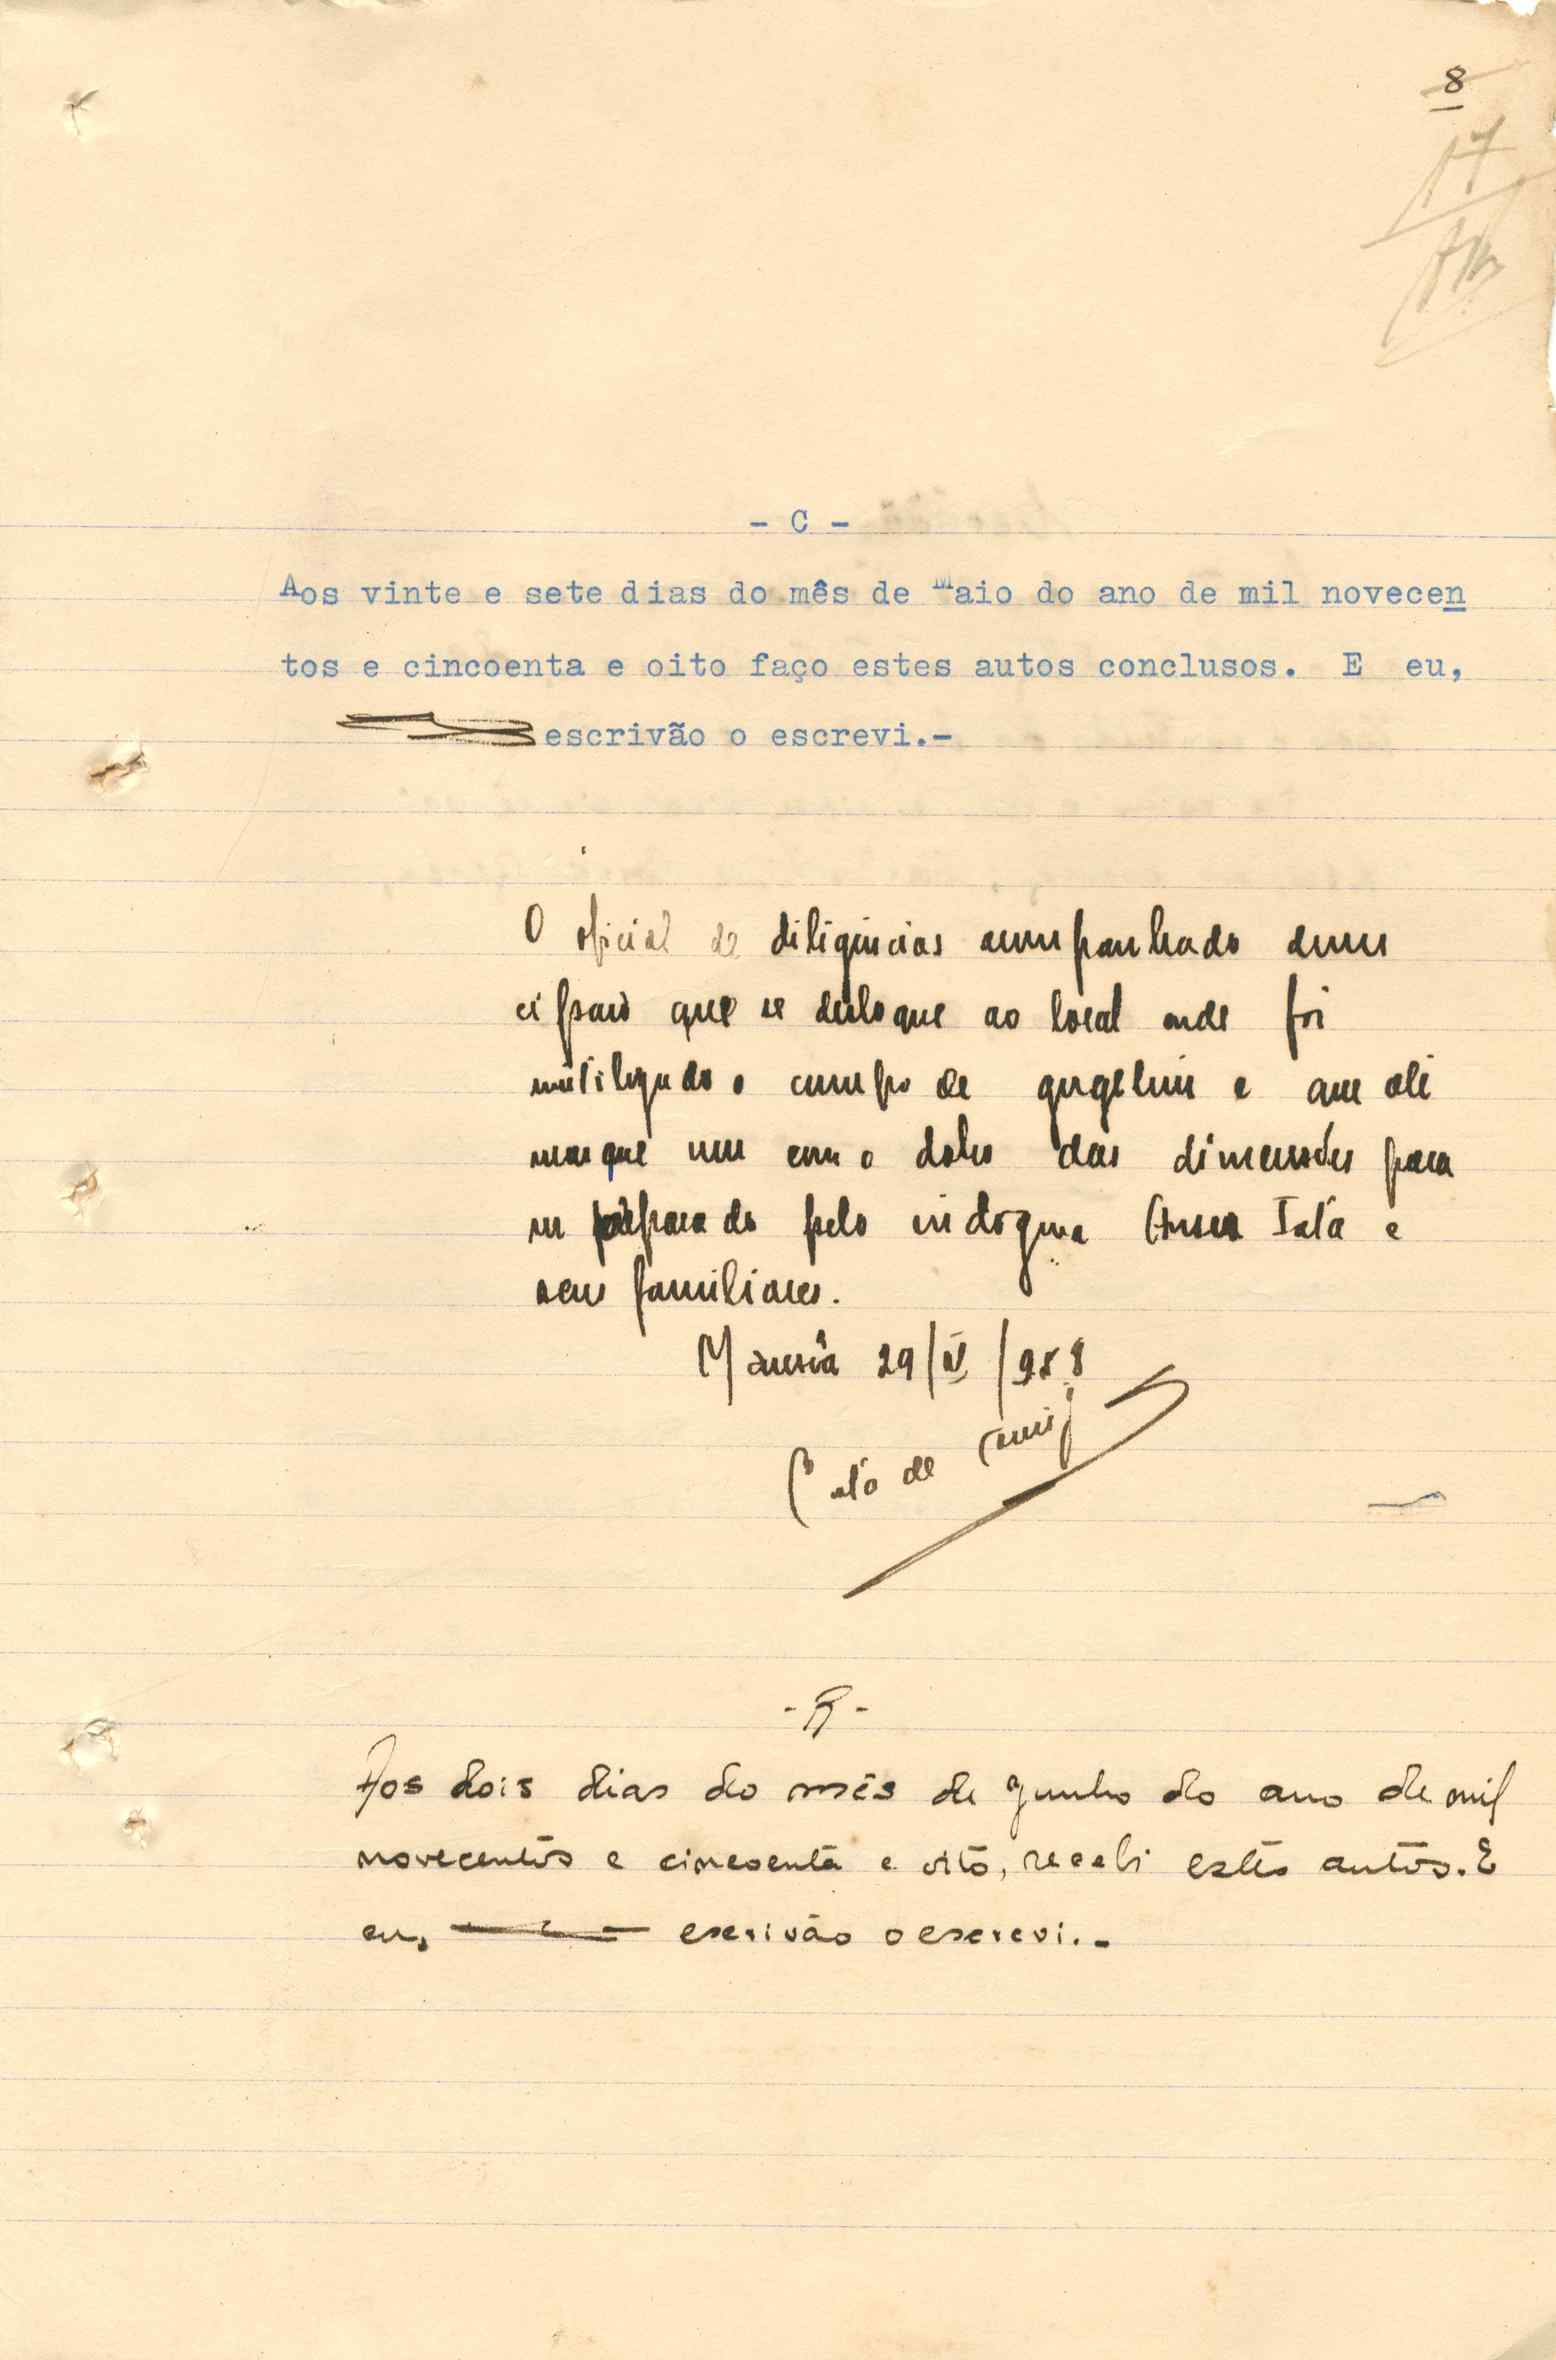 8
17
- C -
Aos vinte e sete dias do mês de Maio do ano de mil novecen
tos e cincoenta e oito faço estes autos conclusos. E eu,
escrivão o escrevi.-
O oficial de diligências acompanhado dum
cipaio que se desloque ao local onde foi
o campo de gergelim e que ali
marque um com o dobro das dimensões para
ser preparado pelo indígena Iala e
seus familiares.
Mansôa 29/V/958
de
- R -
Aos dois dias do mês de Junho do ano de mil
novecentos e cincoenta e oito, recebi estes autos. E
eu, escrivão o escrevi.-